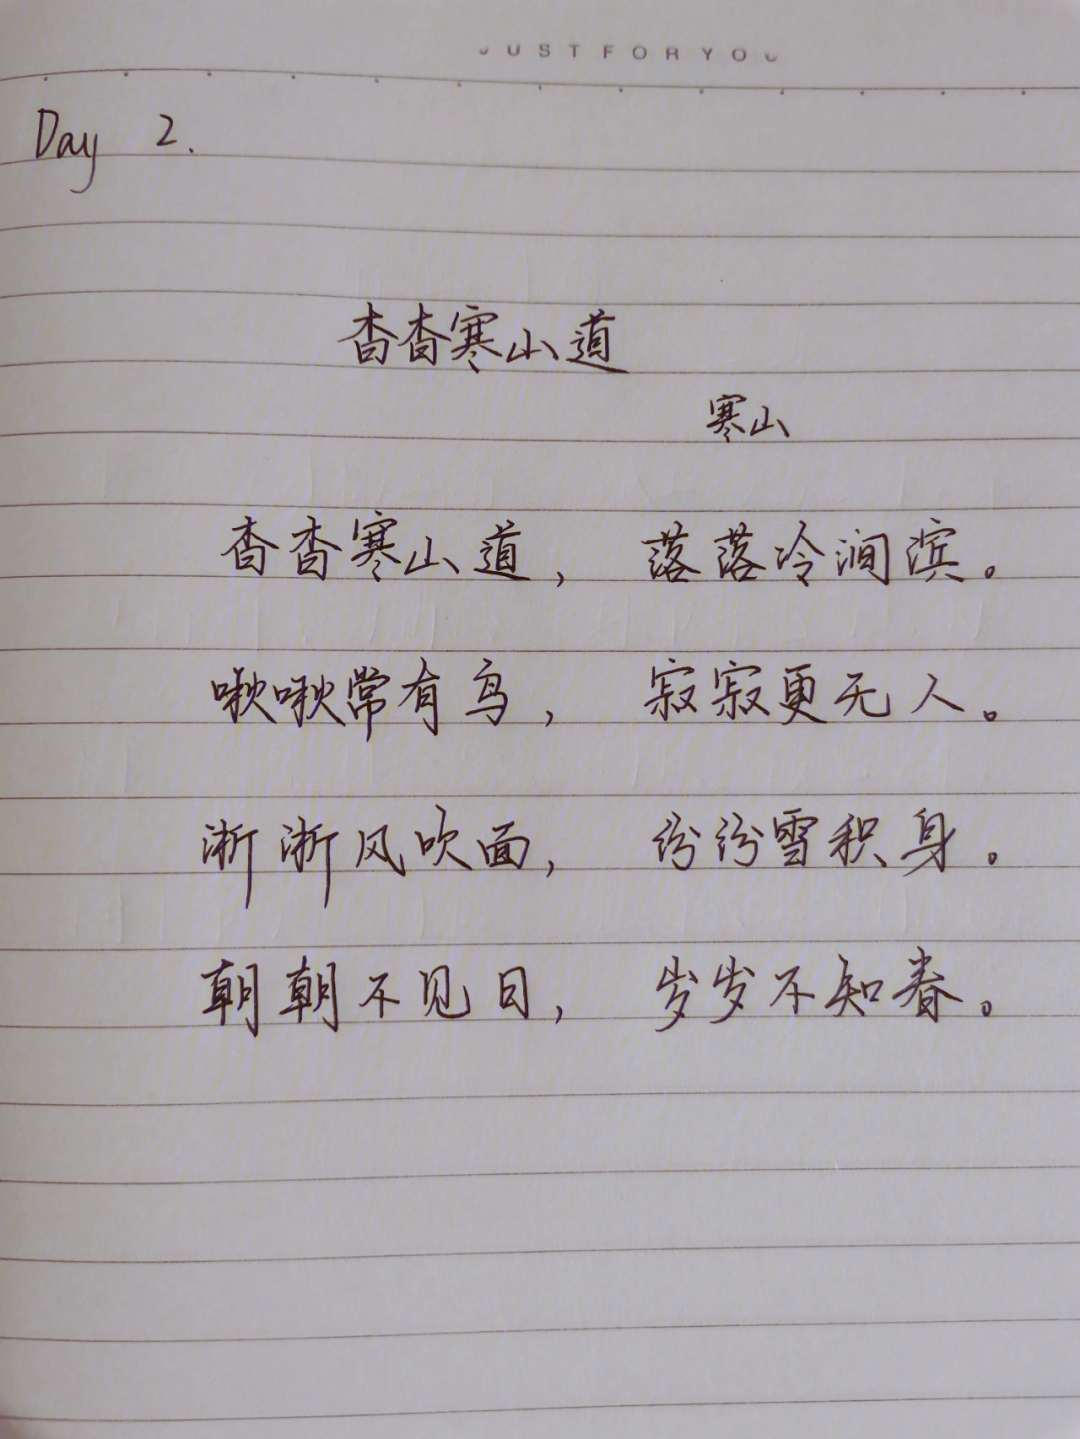 JUST FOR YOU
Day 2.
杳杳寒山道
寒山
杳杳寒山道，落落冷涧滨。
啾啾常有鸟，寂寂更无人。
淅淅风吹面，纷纷雪积身。
朝朝不见日，岁岁不知春。